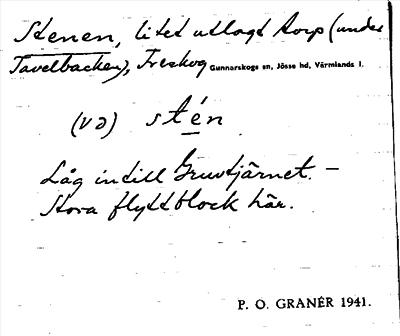 Stenen, litet utlagt torp (under
Tavelbacken), Treskog Gunnarskogs sn, Jösse hd, Värmlands l.
(va) stén
Låg intill Gruvtjärnet. –
Stora flyttblock här.
P. O. GRANÉR 1941.